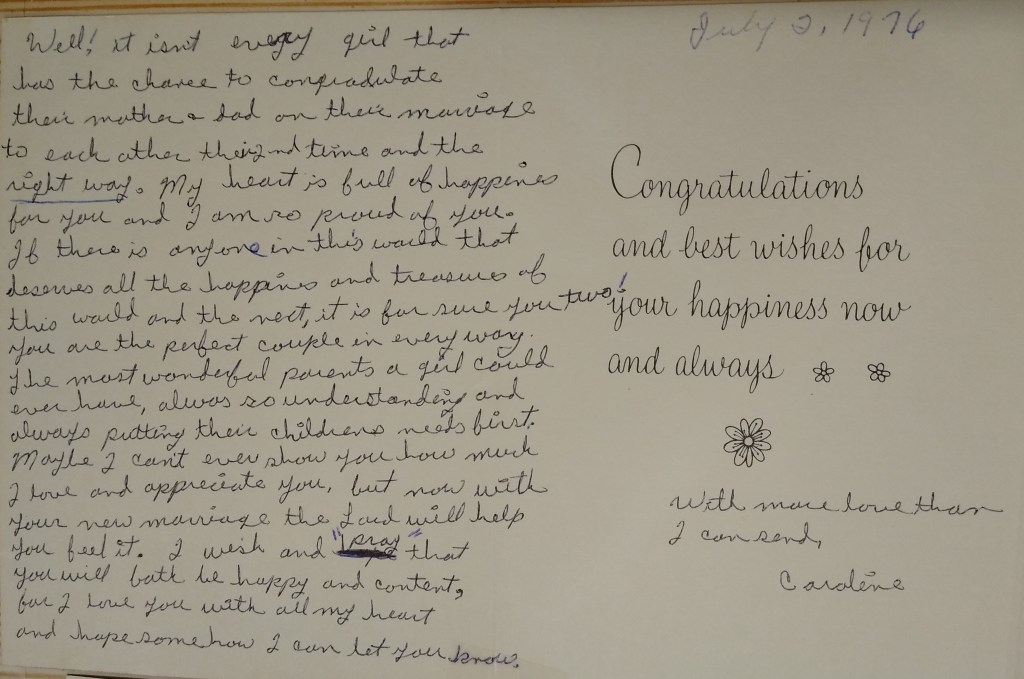 Well! it isn't every girl that
has the chance to congradulate
their mother & dad on their marriage
to each other their 2nd time and the
right way. My heart is full of happines
for you and I am so proud of you.
If there is anyone in this world that
deserves all the happines and treasures of
this world and the next, it is for sure you two!
You are the perfect couple in every way.
The most wonderful parents a girl could
ever have, alwas so understanding and
always putting their childrens needs first.
Maybe I can't ever show you how much
I love and appreciate you, but now with
your new marriage the Lord will help
you feel it. I wish and "pray" that
you will both be happy and content,
for I love you with all my heart
and hope somehow I can let you know.
July 2, 1976
Congratulations
and best wishes for
your happiness now
and always
With more love than
I can send,
Caroline